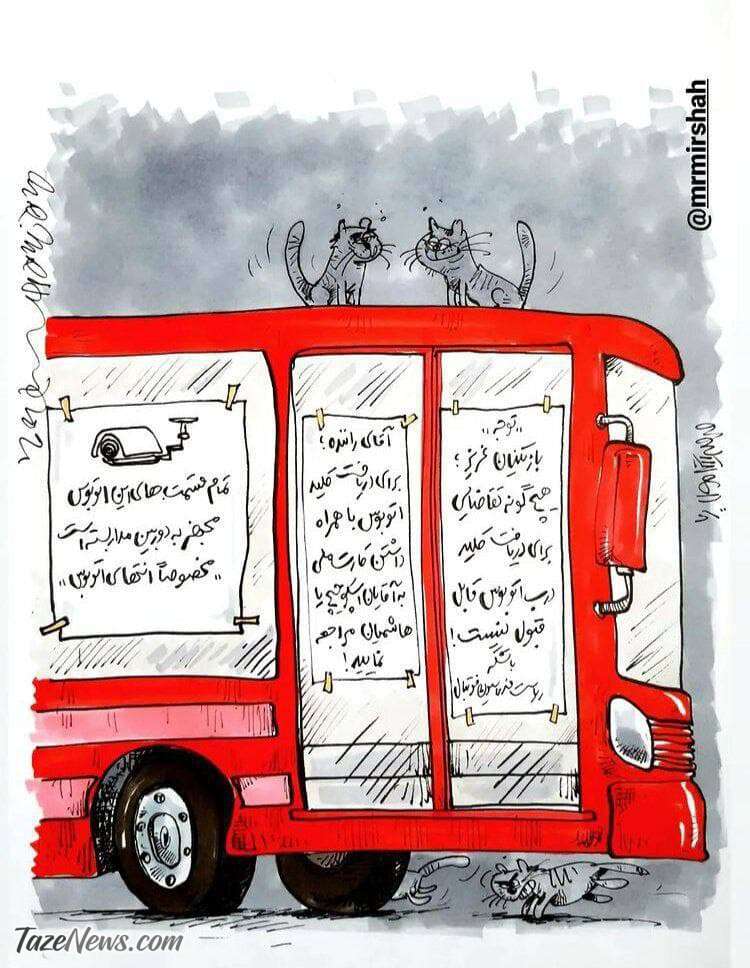 @mrmirshah
تمام قسمت های این اتوبوس
مجهز به دوربین مداربسته است
،،مخصوصاً انتهای اتوبوس،،
آقای راننده؛
برای دریافت کلید
اتوبوس با همراه
داشتن کارت ملی
به آقایان اسکوچیچ یا
هاشمیان مراجعه
نمایید!
،،توجه،،
بازیکنان عزیز؛
هیچ گونه تقاضای
برای دریافت کلید
درب اتوبوس قابل
قبول نیست!
باتشکر
ریاست فدراسیون فوتبال
TazeNews.com